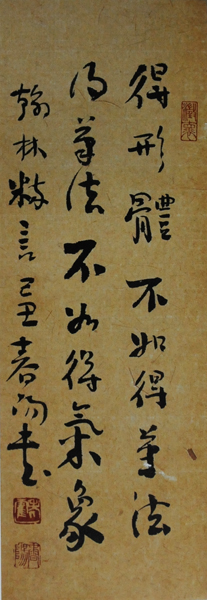 得形體不如得筆法
得筆法不如得氣象
翰林粹言己丑春陽書